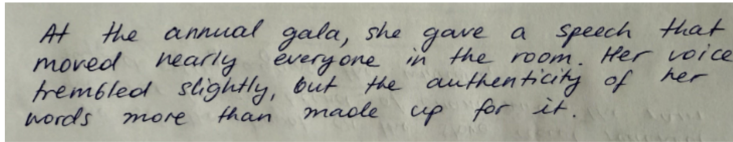 At the annual gala, she gave a speech that
moved nearly everyone in the room. Her voice
trembled slightly, but the authenticity of her
words more than made up for it.